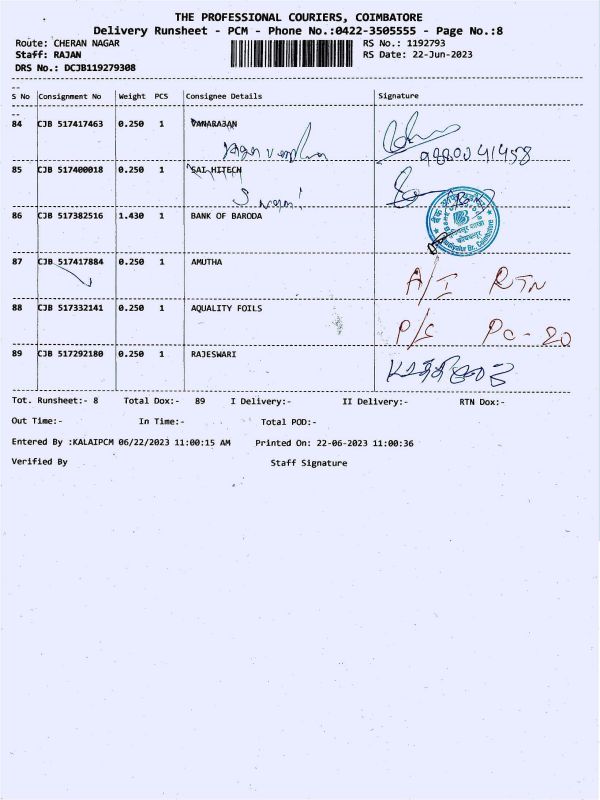 THE PROFESSIONAL COURIERS, COIMBATORE
Delivery Runsheet - PCM - Phone No.:0422-3505555 - Page No.:8
Route: CHERAN NAGAR RS No.: 1192793
Staff: RAJAN RS Date: 22-Jun-2023
DRS No.: DCJB119279308
S No Consignment No Weight PCS Consignee Details Signature
84 CJB 517417463 0.250 1 VANARAJAN
9880041458
85 CJB 517400018 0.250 1 SAI HITECH
86 CJB 517382516 1.430 1 BANK OF BARODA
87 CJB 517417884 0.250 1 AMUTHA
A/I RTN
88 CJB 517332141 0.250 1 AQUALITY FOILS
P/S PC-20
89 CJB 517292180 0.250 1 RAJESWARI
Tot. Runsheet:- 8 Total Dox:- 89 I Delivery:- II Delivery:- RTN Dox:-
Out Time:- In Time:- Total POD:-
Entered By :KALAIPCM 06/22/2023 11:00:15 AM Printed On: 22-06-2023 11:00:36
Verified By Staff Signature